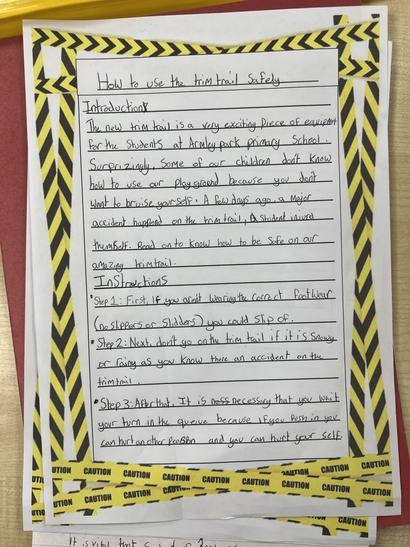 How to use the trim trail safely
Introduction
The new trim trail is a very exciting piece of equipment
for the students at Armley park primary School.
Surprizingly, some of our children don't know
how to use our playground because you don't
want to bruise yourself. A few days ago, a major
accident happend on the trim trail, A student injurd
themself. Read on to know how to be safe on our
amazing trim trail.
Instructions
• Step 1: First, If you arn't wearing the correct footwear
(no slippers or sliders) you could slip of.
• Step 2: Next, don't go on the trim trail if it is snowy
or rainy as you know there an accident on the
trim trail.
• Step 3: After that, It is necessary that you wait
your turn in the queive because if you push in you
can hurt another person and you can hurt your self.
CAUTION CAUTION CAUTION CAUTION
CAUTION CAUTION CAUTION CAUTION
It is vital that